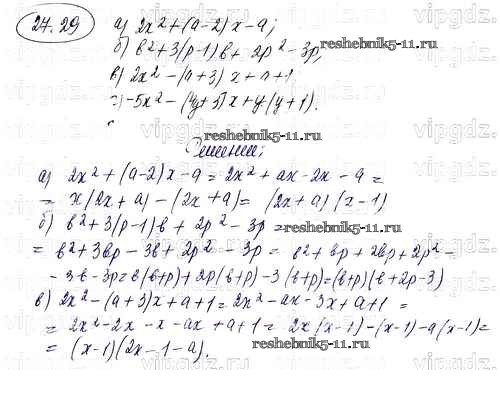 24.29
а) 2x² + (a-2)x - a;
б) b² + 3(p-1)b + 2p² - 3p;
reshebnik5-11.ru
в) 2x² - (a+3)x + a + 1
г) -5x² - (4y+5)x + y(y+1).
reshebnik5-11.ru
Решение:
а) 2x² + (a-2)x - a = 2x² + ax - 2x - a =
= x(2x+a) - (2x+a) = (2x+a)(x-1)
б) b² + 3(p-1)b + 2p² - 3p =
reshebnik5-11.ru
= b² + 3bp - 3b + 2p² - 3p = b² + bp + 2bp + 2p² -
- 3b - 3p = b(b+p) + 2p(b+p) - 3(b+p) = (b+p)(b+2p-3)
в) 2x² - (a+3)x + a + 1 = 2x² - ax - 3x + a + 1 =
= 2x² - 2x - x - ax + a + 1 = 2x(x-1) - (x-1) - a(x-1) =
= (x-1)(2x-1-a).
reshebnik5-11.ru